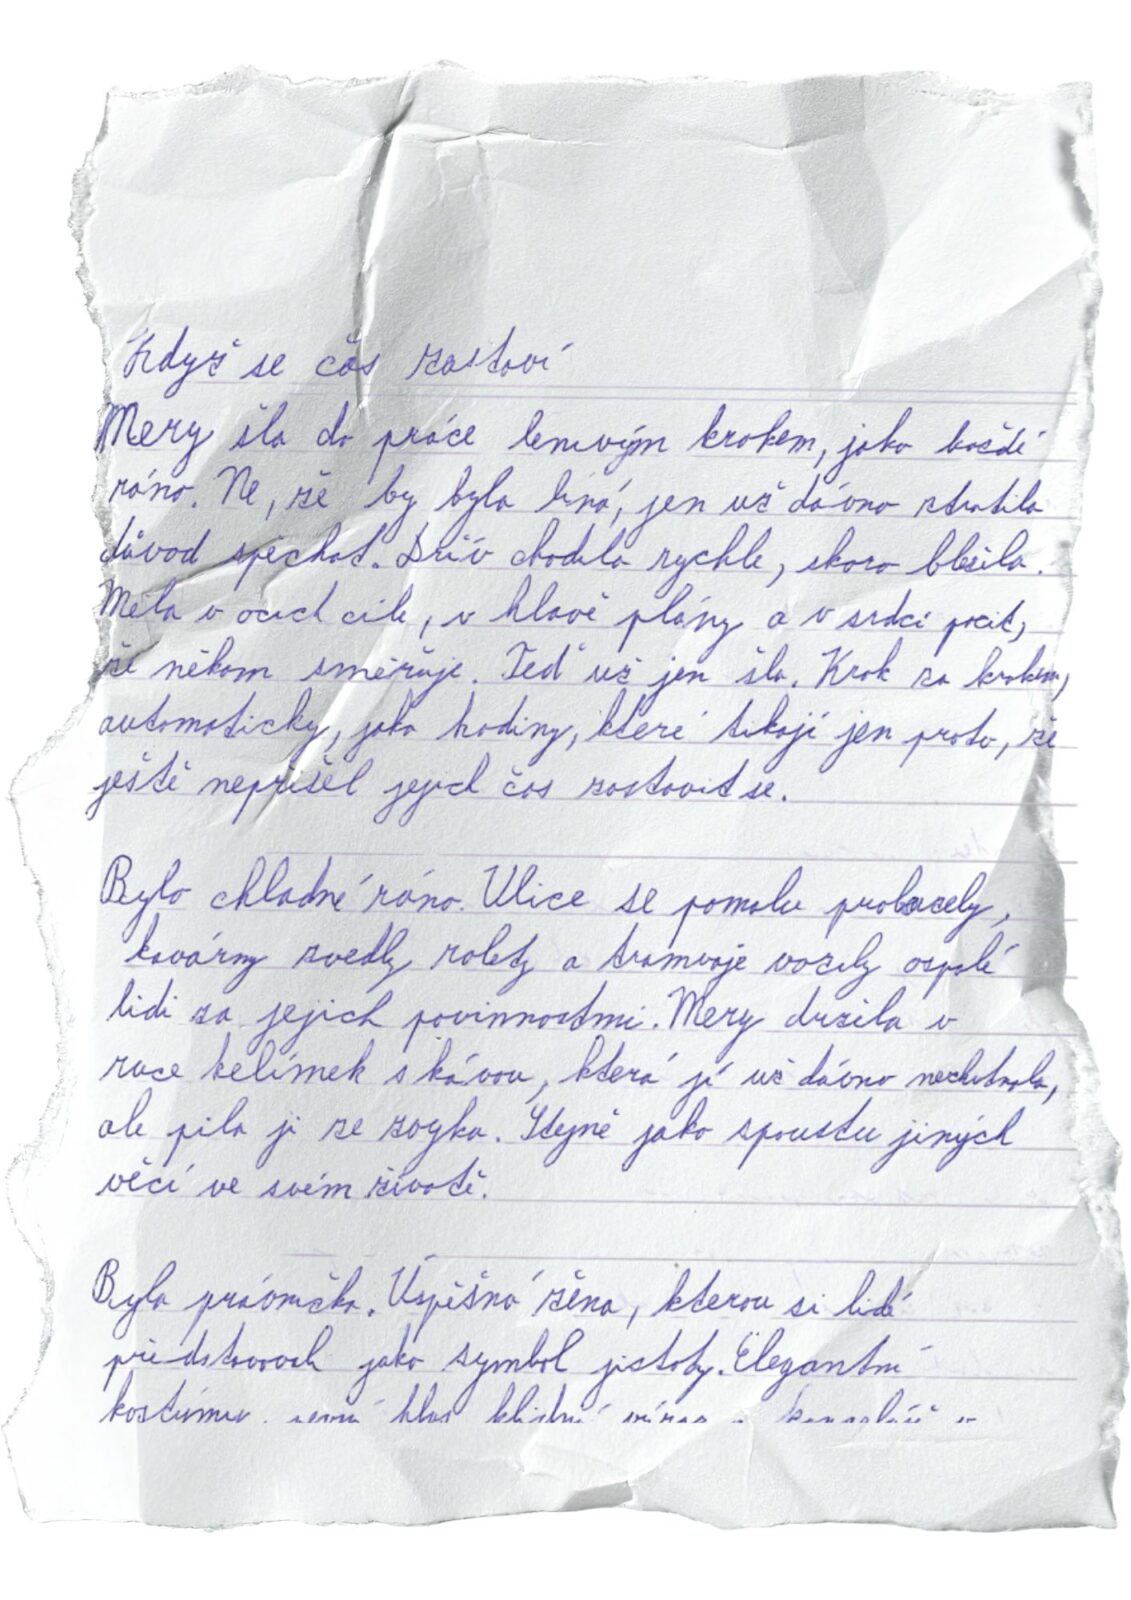 Když se čas zastaví
Mery šla do práce lenivým krokem, jako každé
ráno. Ne, že by byla líná, jen už dávno ztratila
důvod spěchat. Dřív chodila rychle, skoro běžela.
Měla v očích cíle, v hlavě plány a v srdci pocit,
že někam směřuje. Teď už jen šla. Krok za krokem,
automaticky, jako hodiny, které tikají jen proto, že
ještě nepřišel jejich čas zastavit se.
Bylo chladné ráno. Ulice se pomalu probouzely,
kavárny zvedly rolety a tramvaje vozily ospalé
lidi za jejich povinnostmi. Mery držela v
ruce kelímek s kávou, která jí už dávno nechutnala,
ale pila ji ze zvyku. Stejně jako spoustu jiných
věcí ve svém životě.
Byla právnička. Úspěšná žena, kterou si lidé
představovali jako symbol jistoty. Elegantní
kostýmy, pevný hlas klidný výraz a kancelář v